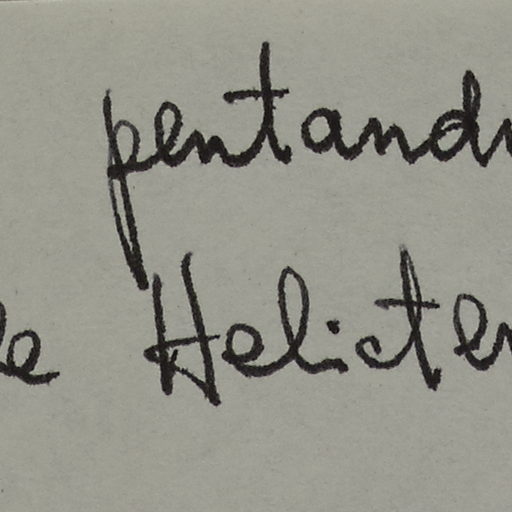 pentand
le Helicter